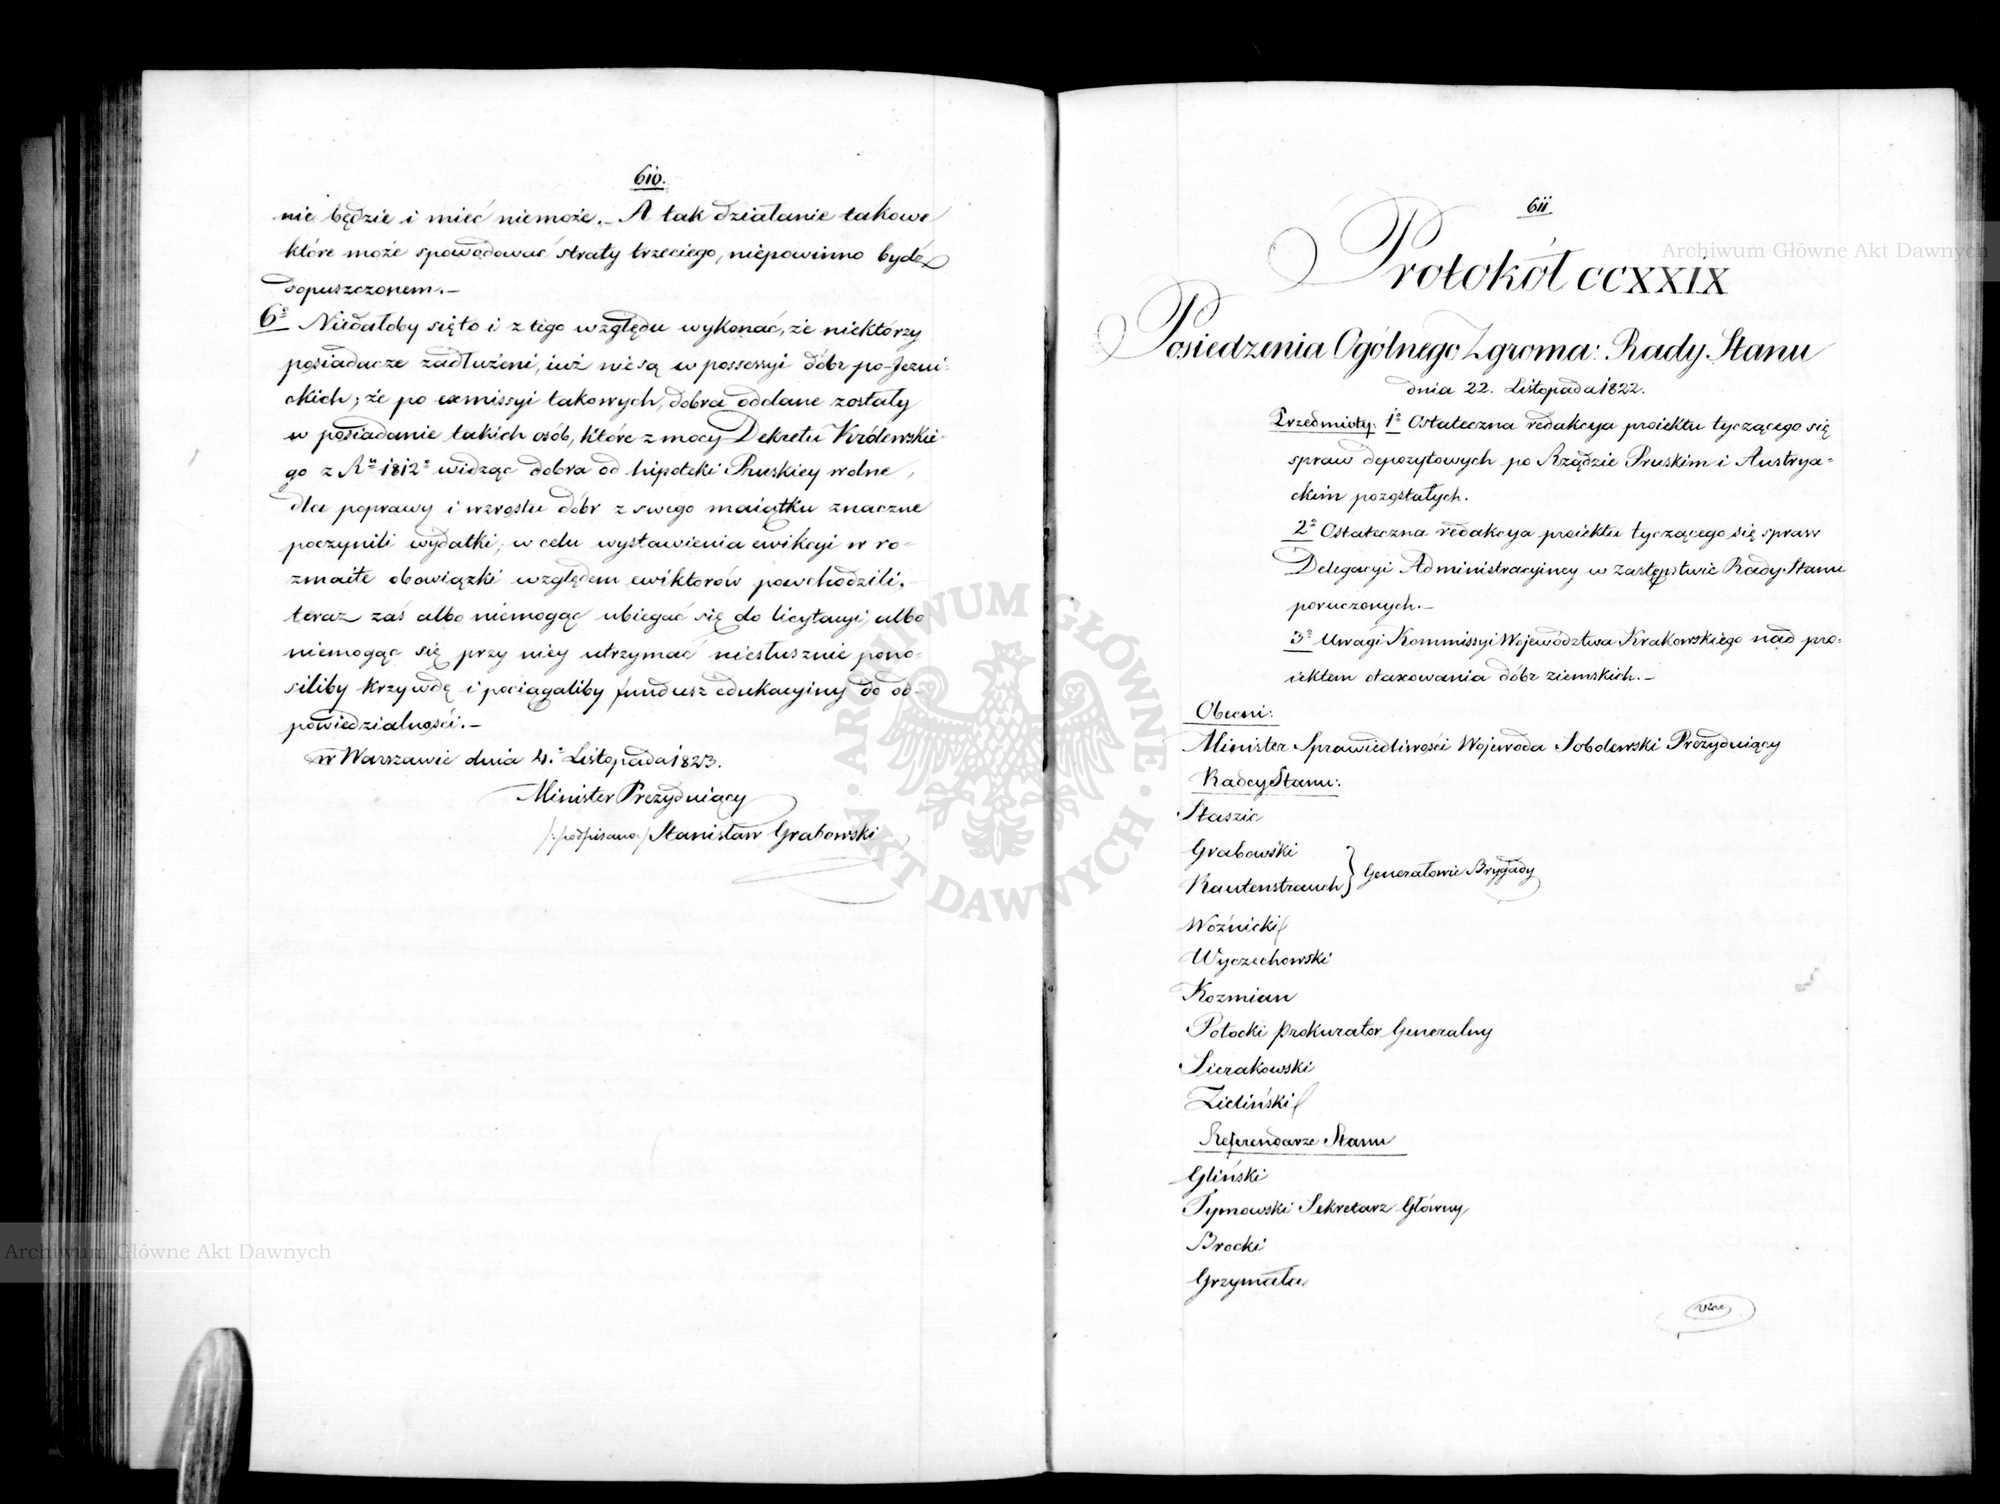 610.
nie będzie i mieć niemoże. - A tak działanie takowe
które może spowodować straty trzeciego, niepowinno bydź
dopuszczonem. -
6° Niedałoby się to i z tego względu wykonać, że niektórzy
posiadacze zadłużeni, iuż nie są w possessyi dóbr po-Jezui-
ckich; że po exmissyi takowych, dobra oddane zostały
w posiadanie takich osób, które z mocy Dekretu Królewskie-
go z Ru 1812° widząc dobra od hipoteki Pruskiey wolne,
dla poprawy i wzrostu dóbr z swego maiątku znaczne
poczynili wydatki, w celu wystawienia ewikcyi w ro-
zmaite obowiązki względem ewiktorów powchodzili.
teraz zaś albo niemogąc ubiegać się do licytacyi, albo
niemogąc się przy niey utrzymać niesłusznie pono-
siliby krzywdę i pociągaliby fundusz edukacyiny do od-
powiedzialności. -
w Warszawie dnia 4.° Listopada 1823.
Minister Prezyduiący
/:podpisano:/ Stanisław Grabowski
611
Protokół CCXXIX
Posiedzenia Ogólnego Zgroma: Rady Stanu
dnia 22. Listopada 1822.
Przedmioty: 1° Ostateczna redakcya proiektu tyczącego się
spraw depozytowych po Rządzie Pruskim i Austrya-
ckim pozostałych.
2° Ostateczna redakcya proiektu tyczącego się spraw
Delegacyi Administracyiney w zastępstwie Rady Stanu
poruczonych. -
3° Uwagi Kommissyi Województwa Krakowskiego nad pro-
iektem otaxowania dóbr ziemskich. -
Obecni:
Minister Sprawiedliwości Wojewoda Sobolewski Prezyduiący
Radcy Stanu:
Staszic
Grabowski
Rautenstrauch } Generałowie Brygady
Woźnicki
Wyczechowski
Kozmian
Potocki Prokurator Generalny
Sierakowski
Zieliński
Referendarze Stanu
Gliński
Tymowski Sekretarz Główny
Brocki
Grzymała
Archiwum Główne Akt Dawnych
Archiwum Główne Akt Dawnych
ARCHIWUM GŁÓWNE AKT DAWNYCH